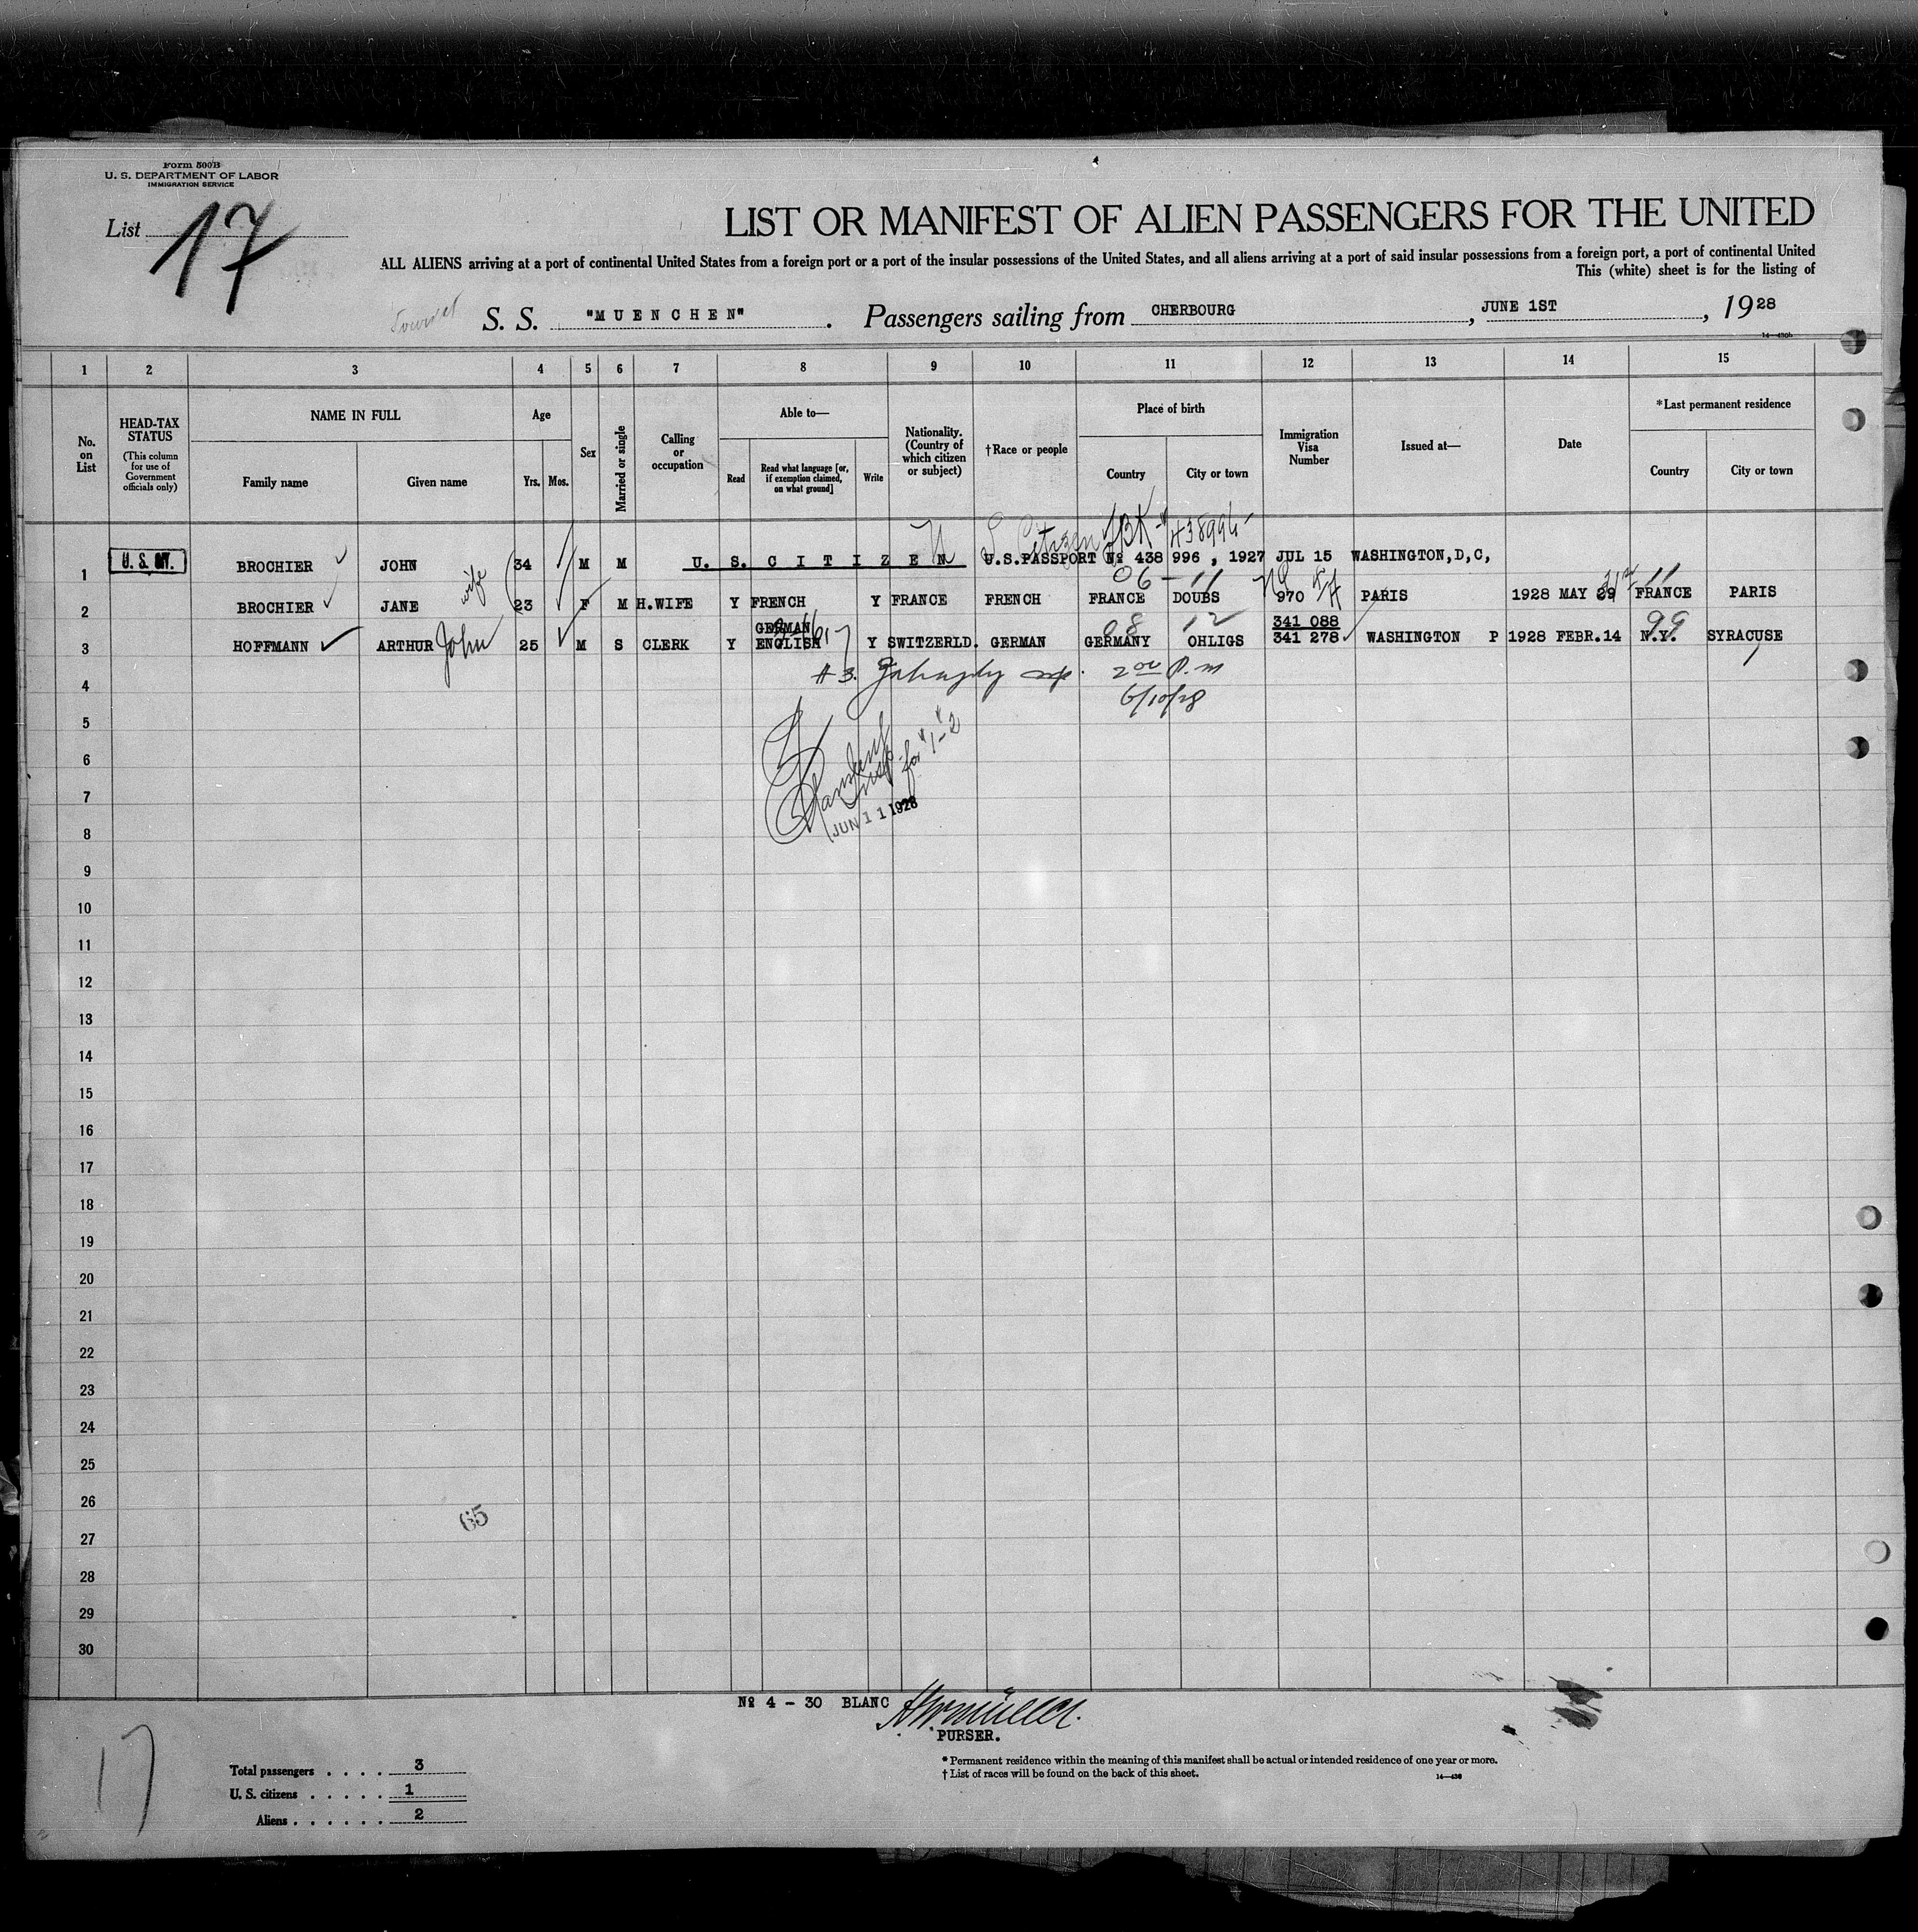 Form 500B
U. S. DEPARTMENT OF LABOR
IMMIGRATION SERVICE
List 17
LIST OR MANIFEST OF ALIEN PASSENGERS FOR THE UNITED
ALL ALIENS arriving at a port of continental United States from a foreign port or a port of the insular possessions of the United States, and all aliens arriving at a port of said insular possessions from a foreign port, a port of continental United
This (white) sheet is for the listing of
S. S. "MUENCHEN". Passengers sailing from CHERBOURG, JUNE 1ST, 1928
14—430b
1 2 3 4 5 6 7 8 9 10 11 12 13 14 15
No. on List
HEAD-TAX STATUS
(This column for use of Government officials only)
NAME IN FULL
Family name
Given name
Age
Yrs. Mos.
Sex
Married or single
Calling or occupation
Able to—
Read
Read what language [or, if exemption claimed, on what ground]
Write
Nationality. (Country of which citizen or subject)
†Race or people
Place of birth
Country
City or town
Immigration Visa Number
Issued at—
Date
*Last permanent residence
Country
City or town
U S Citizen
1 BROCHIER JOHN 34 M M U. S. C I T I Z E N U.S.PASSPORT № 438 996 , 1927 JUL 15 WASHINGTON,D,C,
06 - 11 11
2 BROCHIER JANE wife 23 F M H.WIFE Y FRENCH Y FRANCE FRENCH FRANCE DOUBS 970 PARIS 1928 MAY 29 FRANCE PARIS
GERMAN 08 12 341 088 99
3 HOFFMANN ARTHUR John 25 M S CLERK Y ENGLISH Y SWITZERLD. GERMAN GERMANY OHLIGS 341 278 WASHINGTON P 1928 FEBR.14 N.Y. SYRACUSE
#3. insp. 2 00 P.m
6/10/28
4
5
6
insp. for #1-#2
7
JUN 11 1928
8
9
10
11
12
13
14
15
16
17
18
19
20
21
22
23
24
25
26
65
27
28
29
30
№ 4 - 30 BLANC
PURSER.
17
Total passengers . . . . 3
U. S. citizens . . . . . 1
Aliens . . . . . . 2
* Permanent residence within the meaning of this manifest shall be actual or intended residence of one year or more.
† List of races will be found on the back of this sheet.
14—430